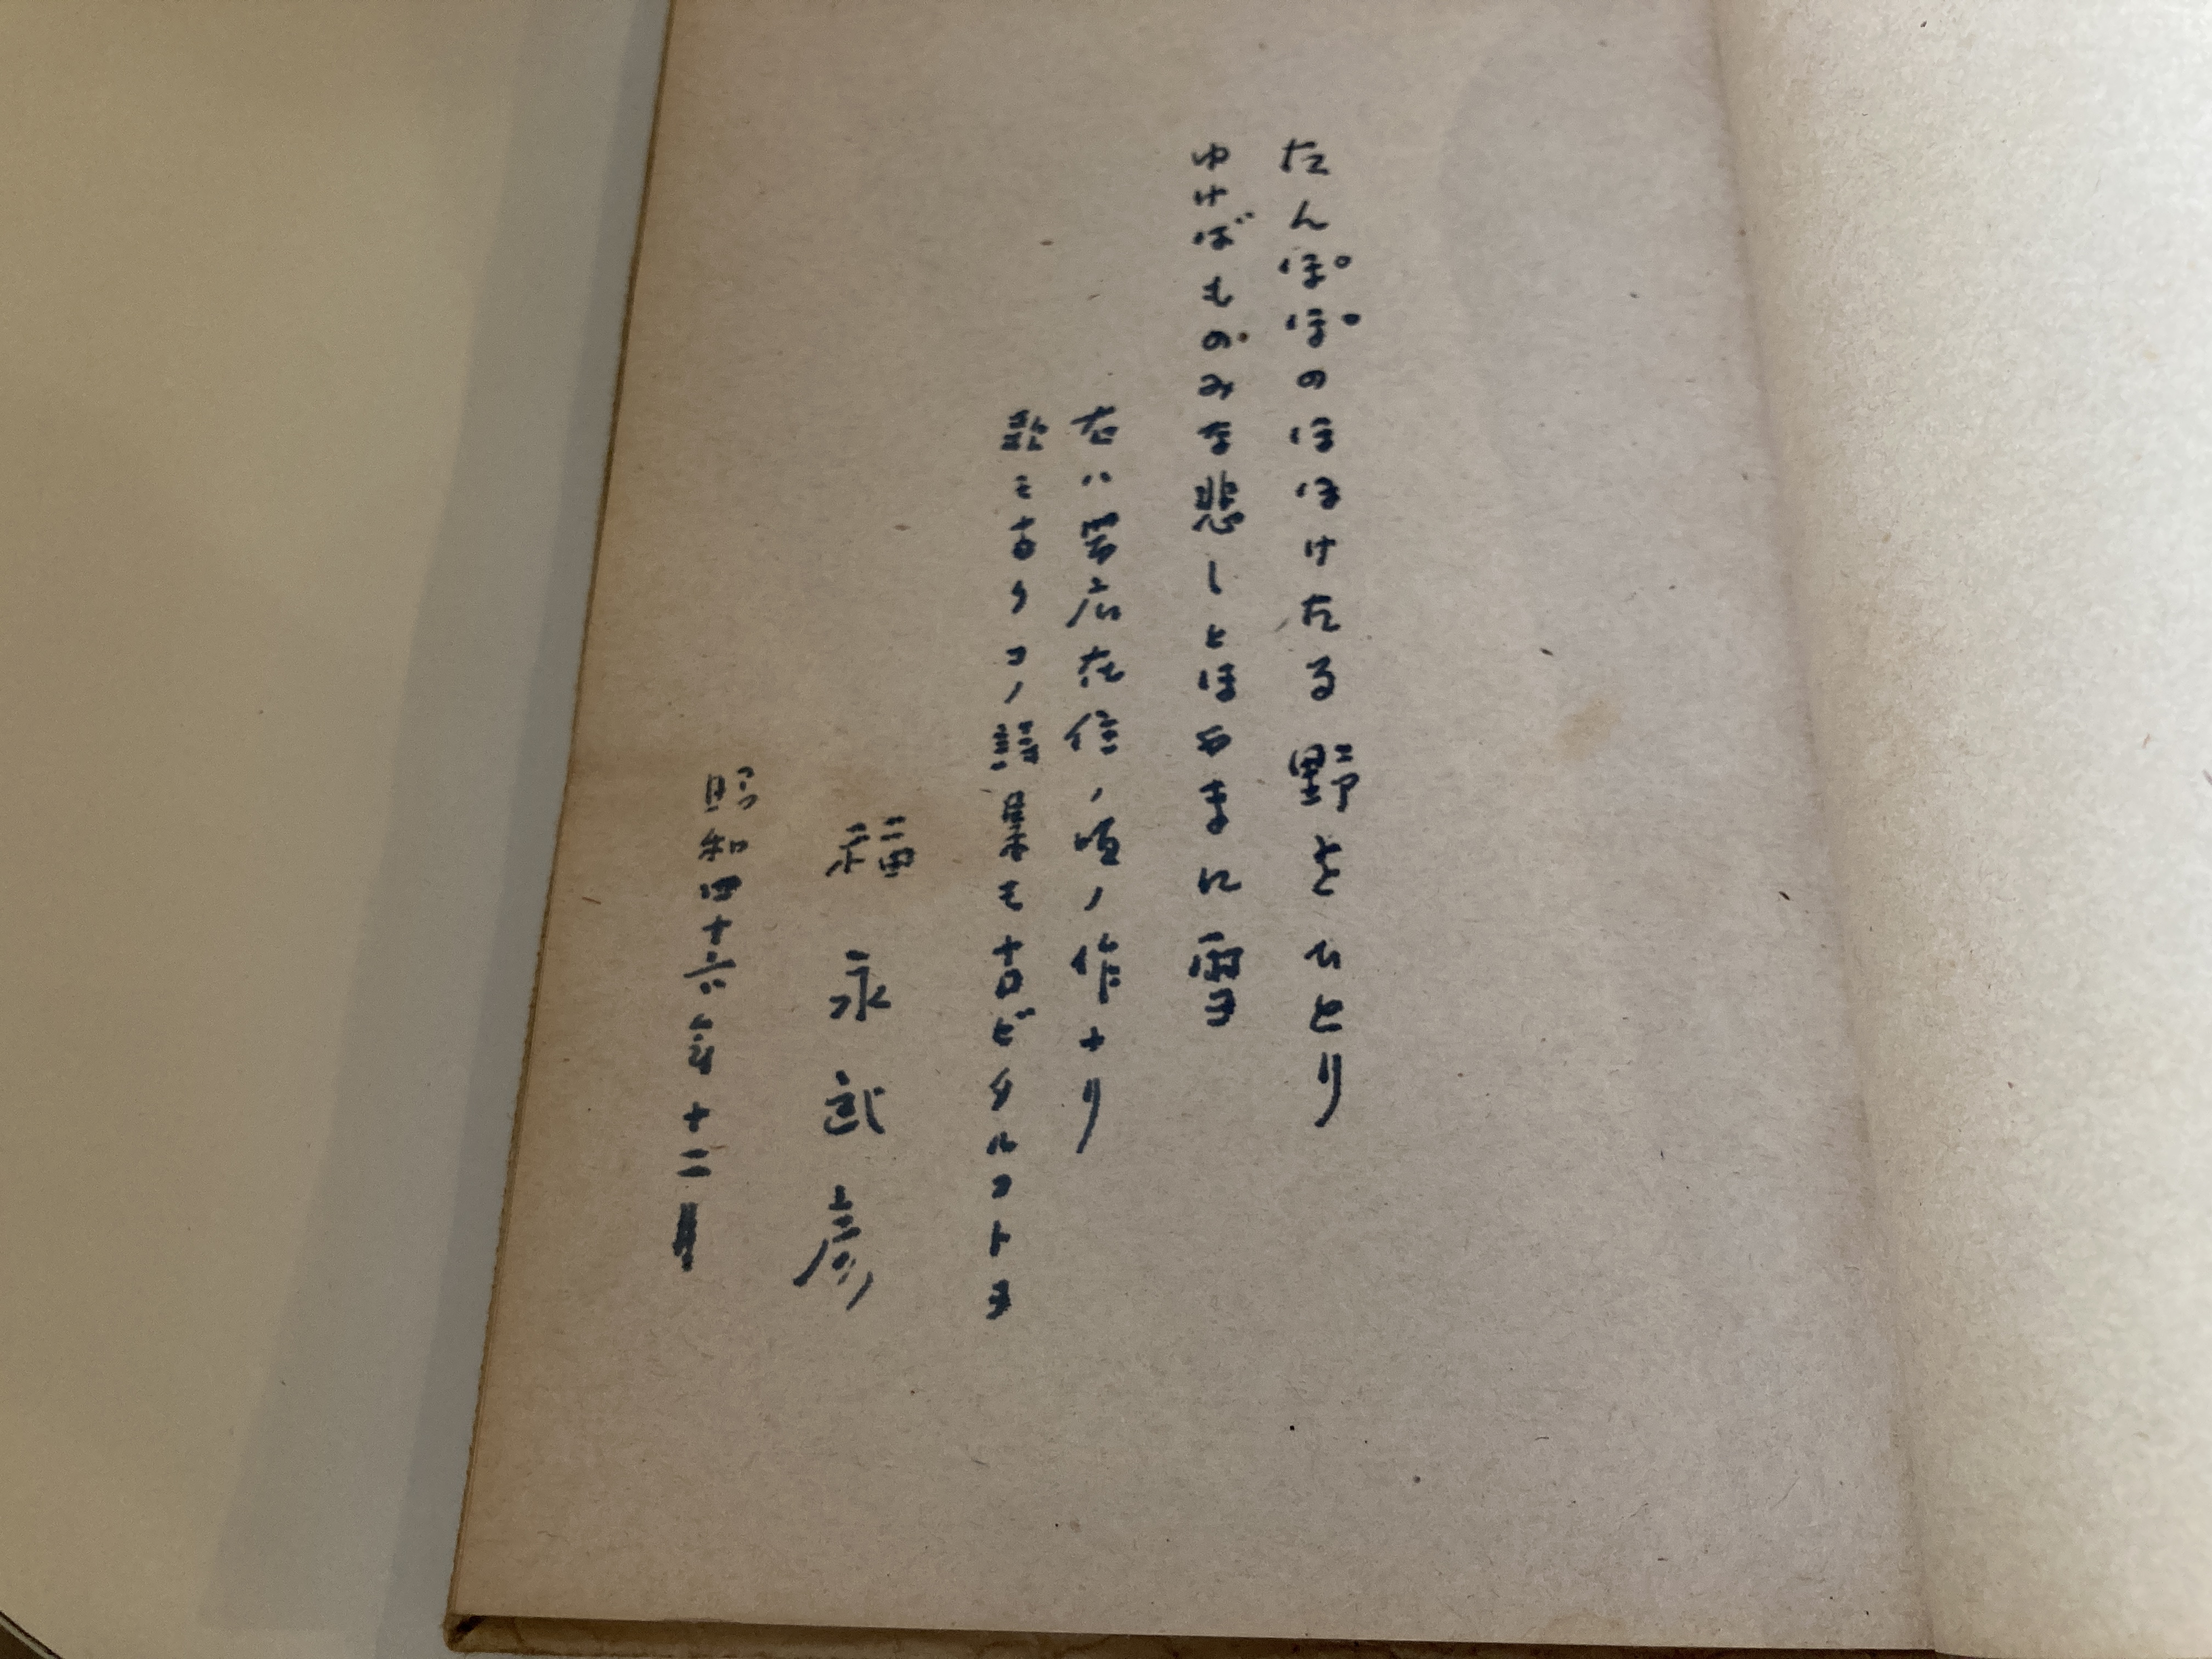 たんぽぽのほほけたる野をひとり
ゆけばものみな悲しとほやまに雪
右ハ帯広在住ノ頃ノ作ナリ
歌モ古クコノ詩集モ古ビタルコト
福永武彦
昭和四十六年十二月